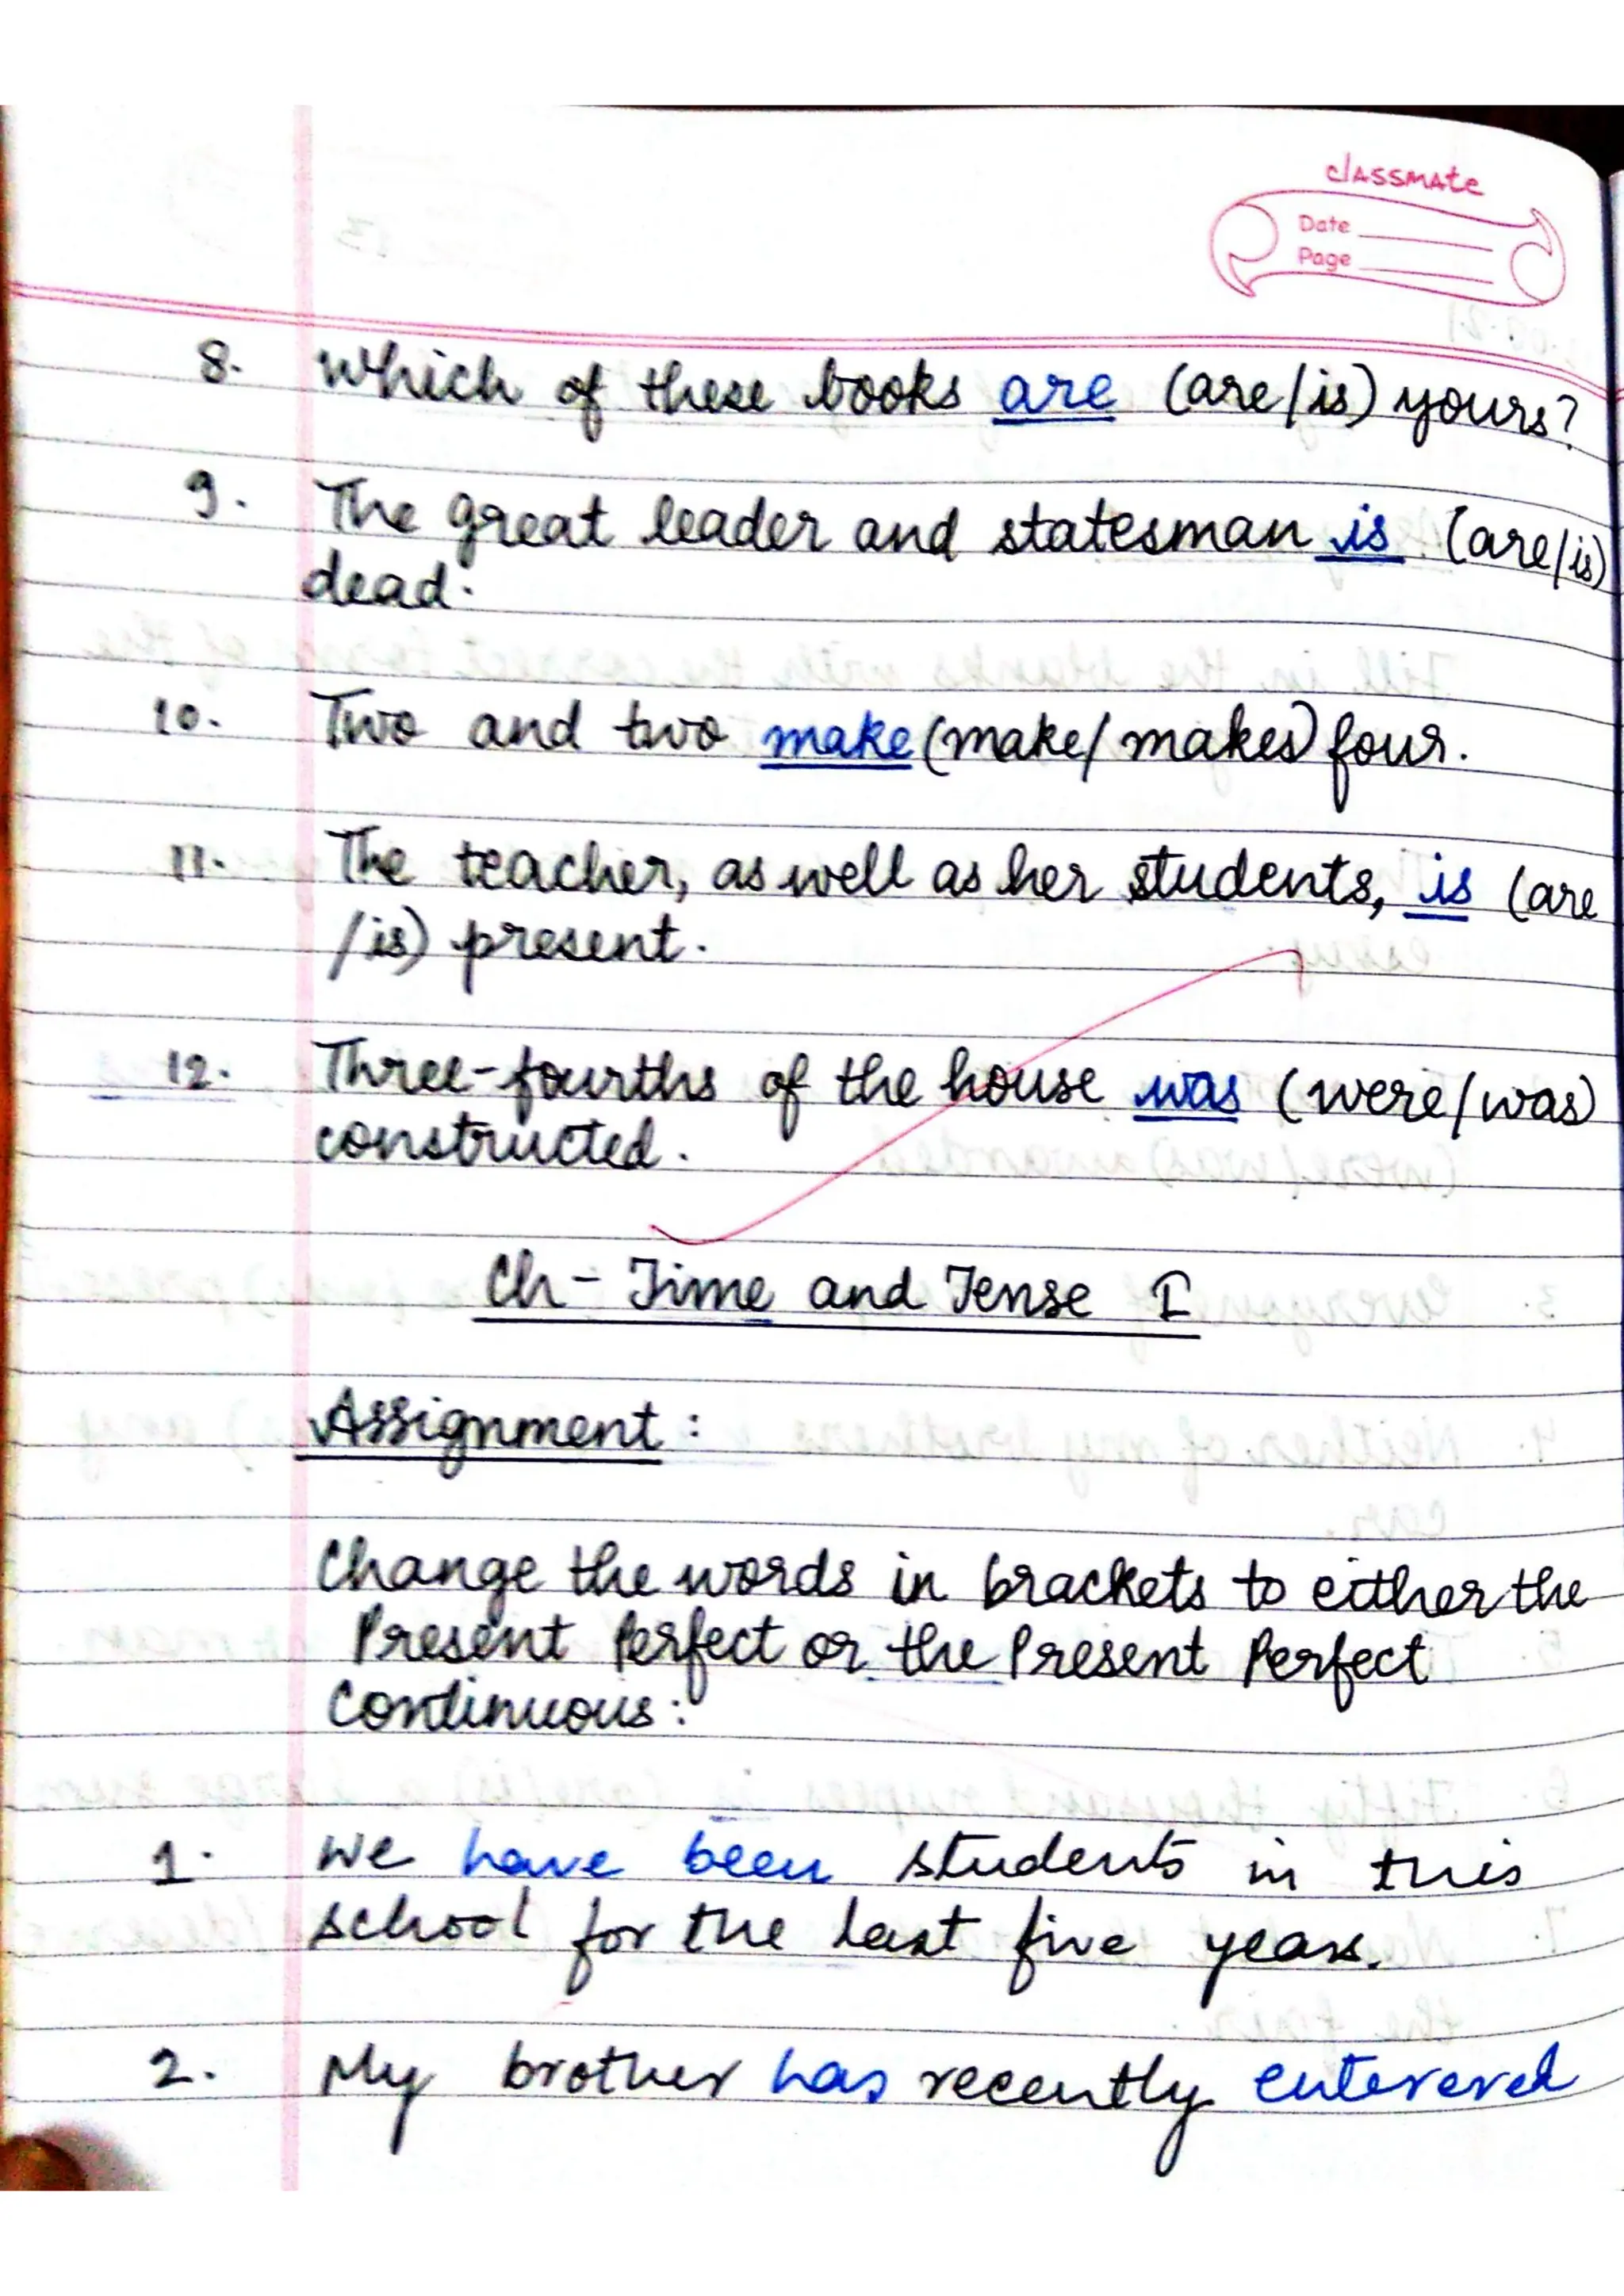 classmate
Date
Page
8. Which of these books are (are/is) yours?
9. The great leader and statesman is (are/is)
dead.
10. Two and two make (make/makes) four.
11. The teacher, as well as her students, is (are
/is) present.
12. Three-fourths of the house was (were/was)
constructed.
Ch - Time and Tense I
Assignment :
Change the words in brackets to either the
Present Perfect or the Present Perfect
Continuous:
1. We have been students in this
school for the last five years.
2. My brother has recently enterered